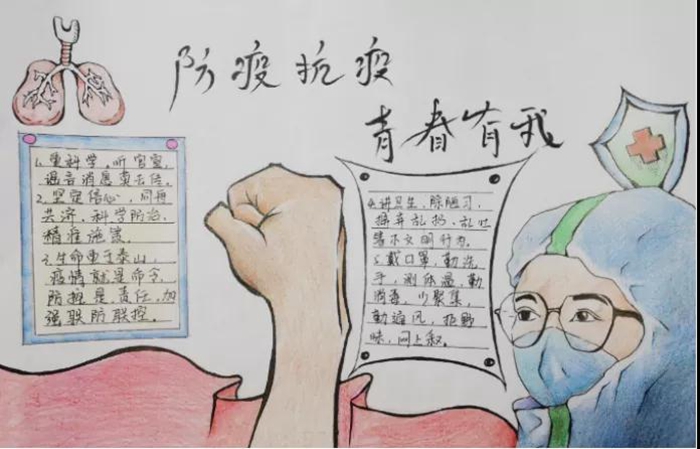 防疫抗疫
青春有我
1.重科学,听官宣,
谣言消息莫去传。
2.坚定信心、同舟
共济、科学防治、
精准施策。
3.生命重于泰山、
疫情就是命令、
防控是责任、加
强联防联控。
4.讲卫生、除陋习,
摒弃乱扔、乱吐
等不文明行为。
5.戴口罩、勤洗
手,测体温、勤
消毒、少聚集,
勤通风,拒野
味、网上叙。